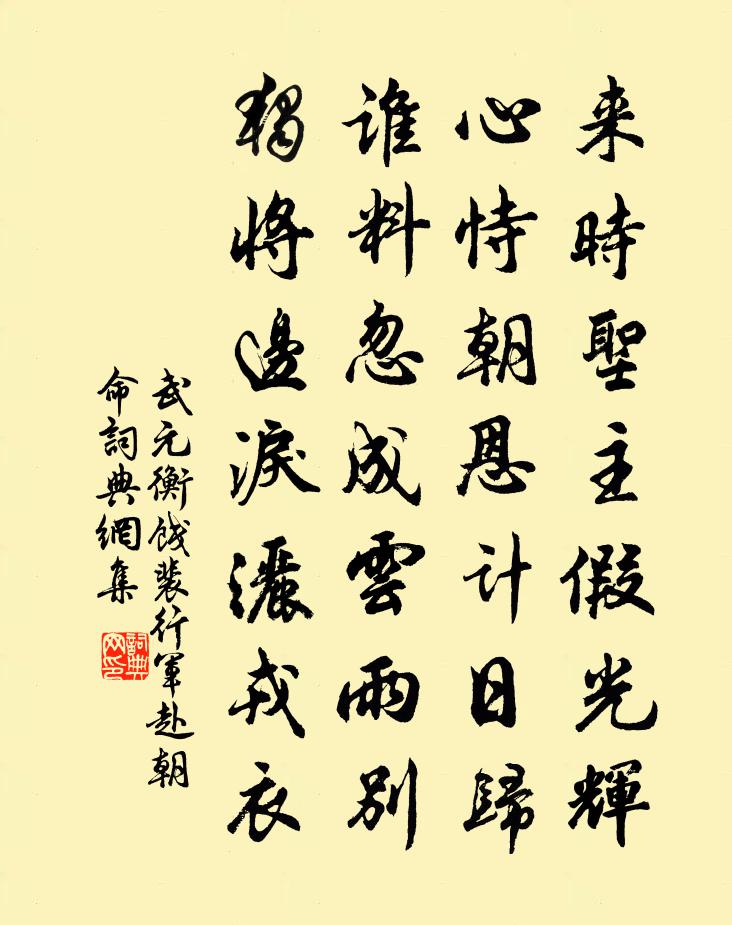 来時聖主假光輝
心恃朝恩計日歸
誰料忽成雲雨別
獨將邊淚灑戎衣
武元衡餞裴行軍赴朝
命詞典網集
詞典網印